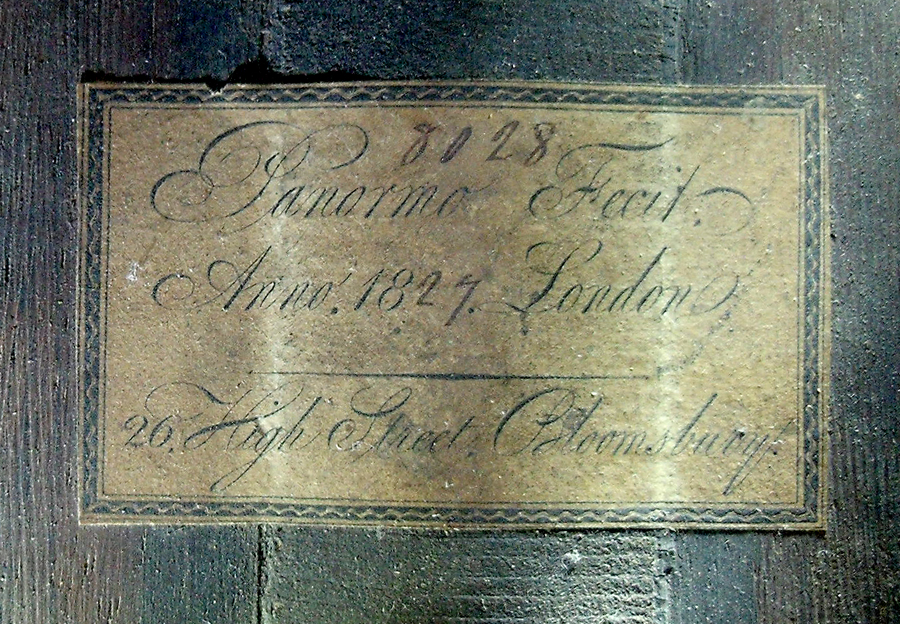 8028
Panormo Fecit.
Anno. 1827. London
26, High Street, Bloomsbury.